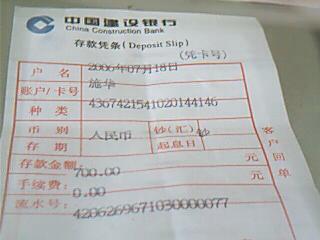 中国建设银行
China Construction Bank
存款凭条(Deposit Slip)
(凭卡号)
2006年07月18日
户 名
施华
账户/卡号
4367421541020144146
种 类
币 别 人民币 钞(汇) 钞
存 期 起息日
存款金额: 700.00 元
手续费: 0.00 元
流水号: 4206269671030000077
客户回单